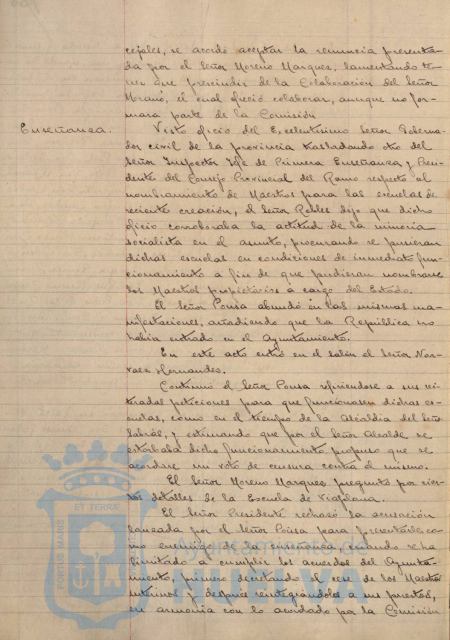 cejales, se acordó aceptar la renuncia presenta-
da por el Señor Moreno Marquez, lamentando te-
ner que prescindir de la Colaboración del Señor
Moreno, el cual ofreció colaborar, aunque no for-
mara parte de la Comisión
Enseñanza.
Visto oficio del Excelentísimo Señor Goberna-
dor civil de la provincia trasladando otro del
Señor Inspector Jefe de Primera Enseñanza y Presi-
dente del Consejo Provincial del Ramo respecto al
nombramiento de Maestros para las escuelas de
reciente creación, el Señor Robles dijo que dicho
oficio corroboraba la actitud de la minoría
socialista en el asunto, procurando se pusieran
dichas escuelas en condiciones de inmediato fun-
cionamiento a fin de que pudieran nombrarse
los Maestros propietarios a cargo del Estado.
El Señor Ponsa abundó en las mismas ma-
nifestaciones, añadiendo que la República no
había entrado en el Ayuntamiento.
En este acto entró en el salón el Señor Nar-
vaez Hernandez.
Continuó el Señor Ponsa refiriendose a sus rei-
teradas peticiones para que funcionasen dichas es-
cuelas, como en el tiempo de la Alcaldía del Señor
y estimando que por el Señor Alcalde se
estorbaba dicho funcionamiento propuso que se
acordase un voto de censura contra el mismo.
El Señor Moreno Marquez preguntó por cier-
tos detalles de la Escuela de Viaplana.
El Señor Presidente rechazó la acusación
lanzada por el Señor Ponsa para presentarle co-
mo enemigo de la enseñanza, cuando se ha
limitado a cumplir los acuerdos del Ayunta-
miento, primero decretando el cese de los Maestros
interinos y después reintegrándoles a sus puestos,
en armonía con lo acordado por la Comisión
PORTUS MARIS
ET TERRÆ
Ayuntamiento de
HUELVA